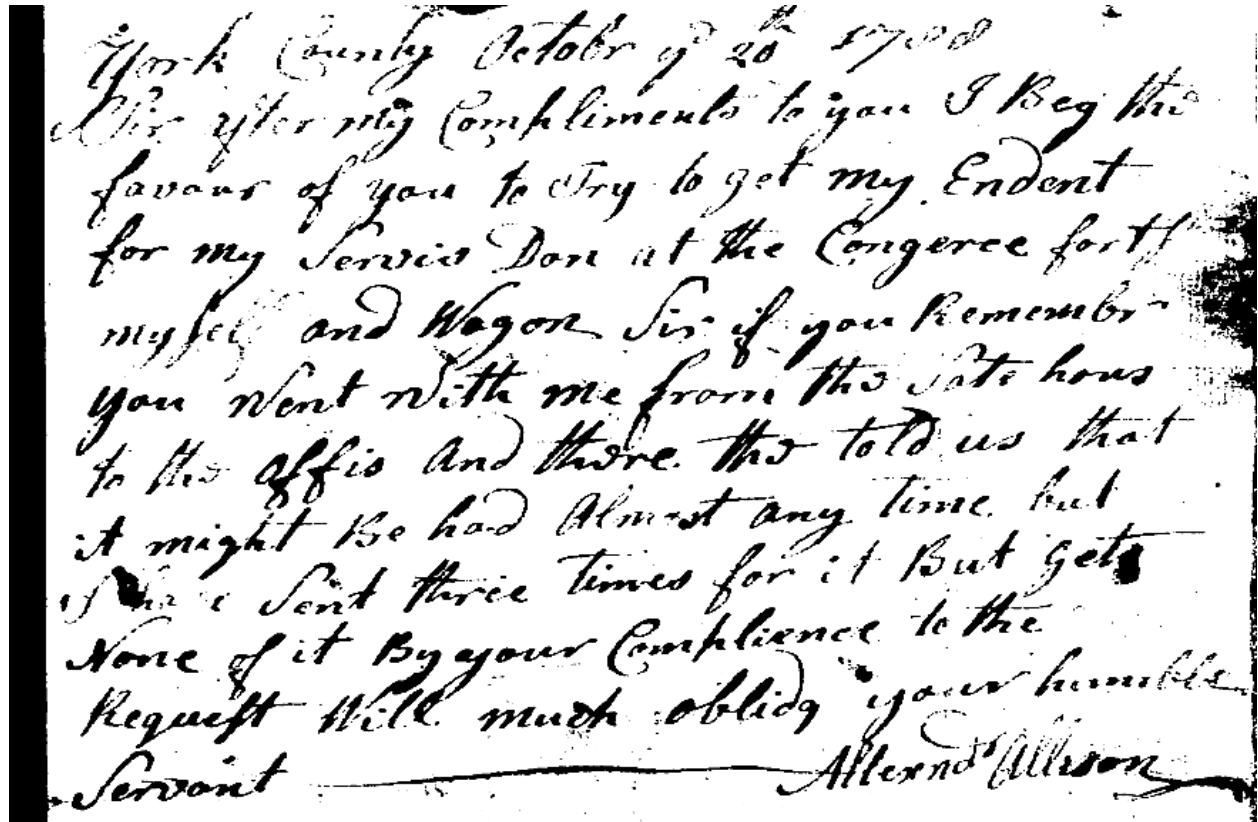 York County Octobr ye 20th 1788
Sir after my Compliments to you I Beg the
favour of you to Try to get my Endent
for my Servis Don at the Congeree fort
myself and Wagon Sir if you Remembr
you Went With me from the State hous
to the offis And there the told us that
it might Be had Almost any time but
I have Sent three times for it But Gets
None of it By your Complience to the
Request Will much oblidg your humble
Servant Allexndr Allison